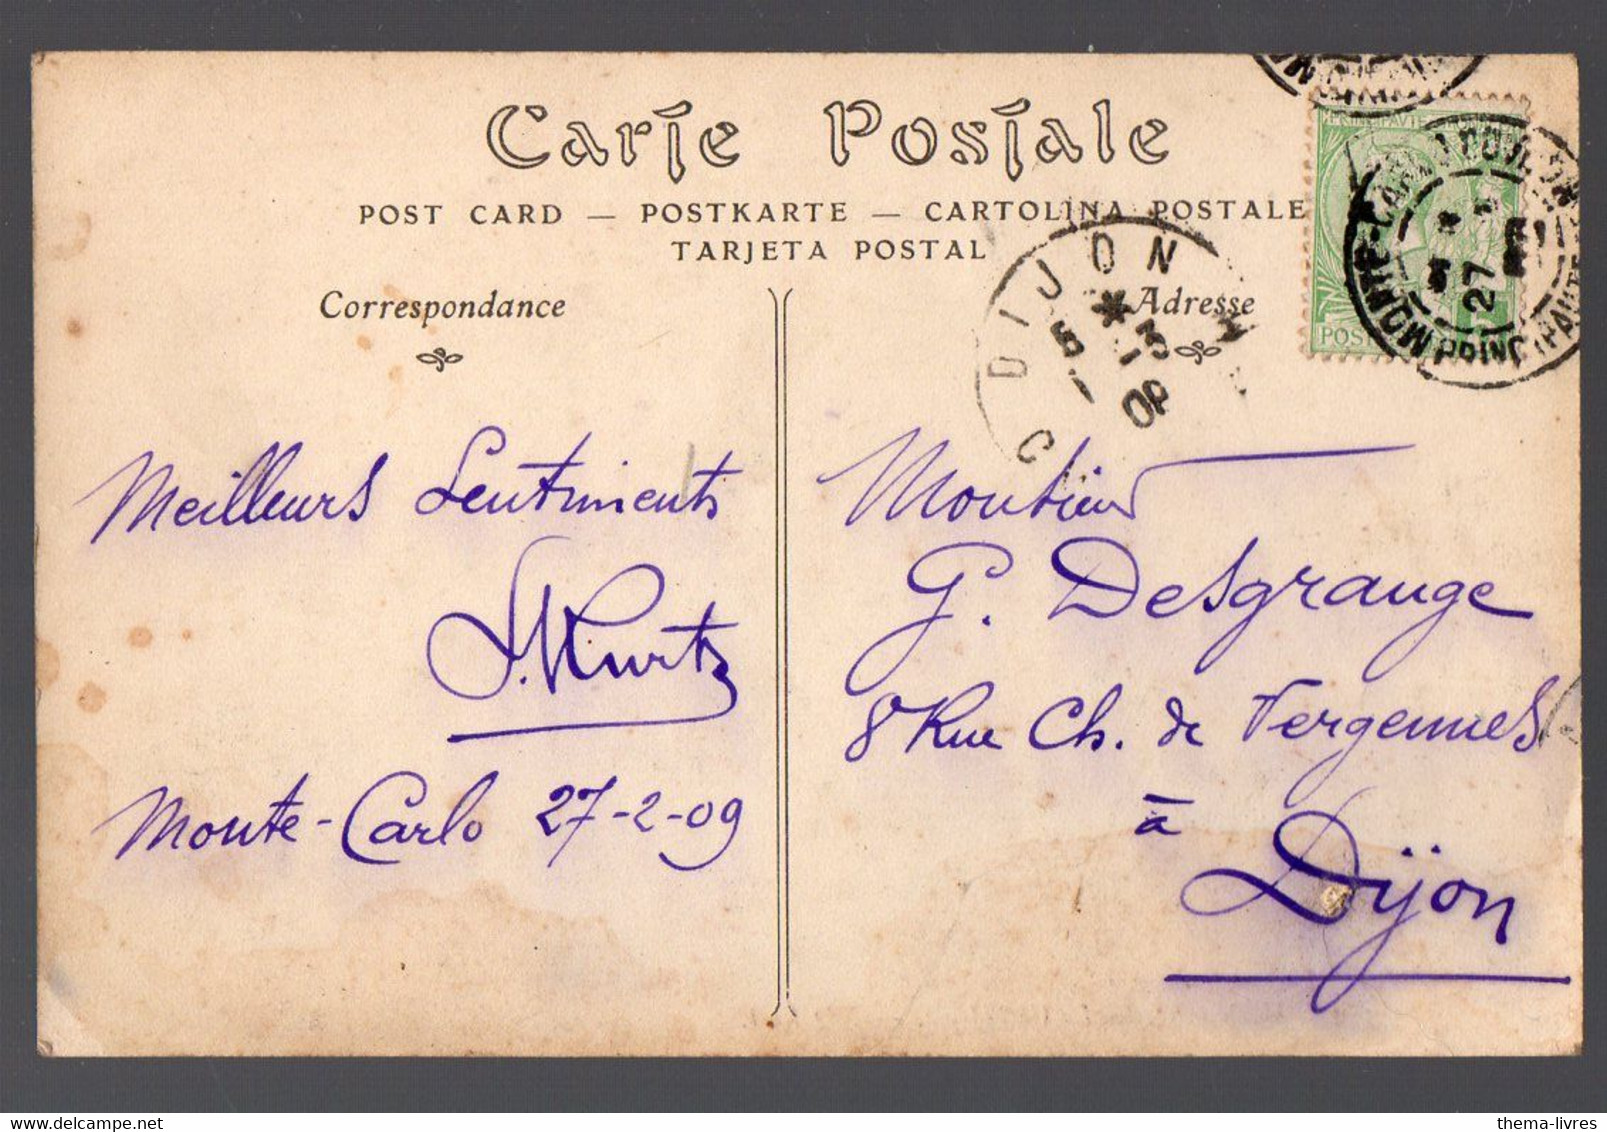 Carte Postale
POST CARD — POSTKARTE — CARTOLINA POSTALE
TARJETA POSTAL
Correspondance
Adresse
DIJON
MONTE-CARLO
27
PRINCIPAUTÉ
POST
Meilleurs Sentiments
Kurtz
Monte-Carlo 27-2-09
Monsieur
G. Desgrange
8 Rue Ch. de Vergennes
à
Dijon
thema-livres